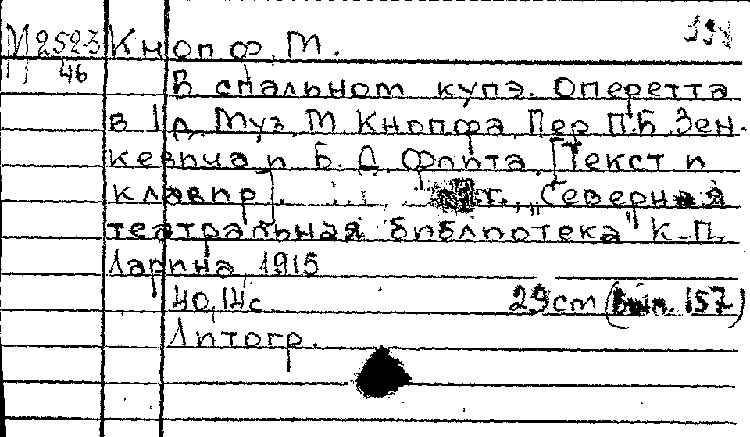 М 2523 Кнопф, М.
46
В спальном купэ. Оперетта
в 1 д. Муз. М. Кнопфа. Пер. П.Б. Зен-
кевича и Б. Д. Флита. [Текст и
клавир]. г., "Северная
театральная библиотека" К.П.
Ларина, 1915
40, 14 с. 29 cm (Вып. 157)
Литогр.